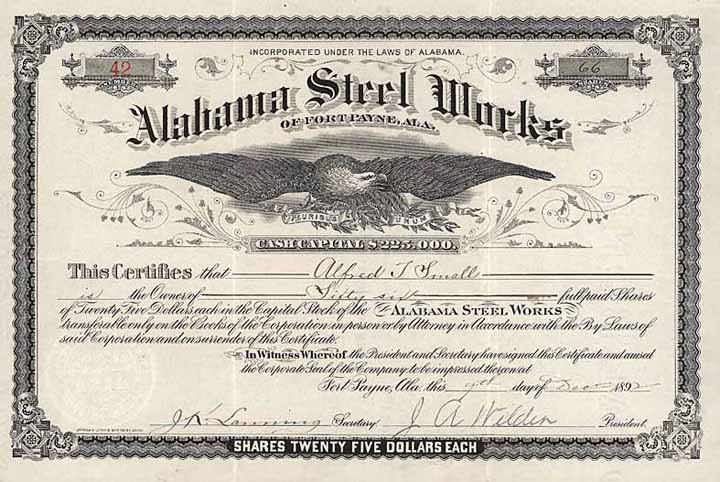 INCORPORATED UNDER THE LAWS OF ALABAMA.
42
NUMBER
66
SHARES
Alabama Steel Works
OF FORT PAYNE, ALA.
PLURIBUS UNUM
CASH CAPITAL $225,000.
This Certifies that Alfred T Small
is the Owner of Sixty six full paid Shares
of Twenty Five Dollars each in the Capital Stock of the ALABAMA STEEL WORKS
transferable only on the Books of the Corporation in person or by Attorney in Accordance with the By Laws of
said Corporation and on surrender of this Certificate.
In Witness Whereof the President and Secretary have signed this Certificate and caused
the Corporate Seal of the Company to be impressed thereon at
Fort Payne, Ala. this day of Dec 1892
J. K. Lanning Secretary. J A Weldin President.
SHARES TWENTY FIVE DOLLARS EACH